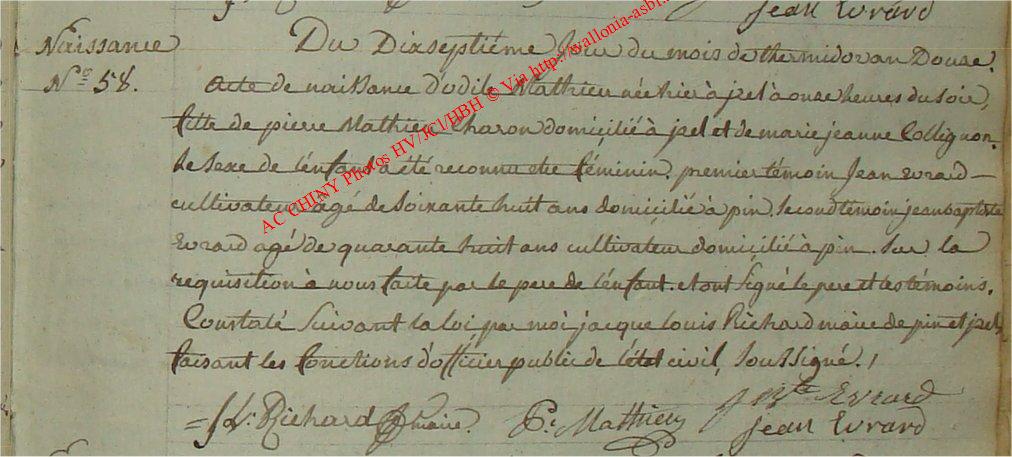 Jean Evrard
Naissance
N.º 58.
Du Dixseptiéme Jour du mois de thermidor an Douze.
Acte de naissance d'odile Mathieu née hier à jzel à onze heures du soir,
fille de pierre Mathieu Charon domicilié à jzel et de marie jeanne Collignon.
Le Sexe de l'énfant a été reconnu etre féminin. premier témoin Jean Evrard
cultivateur agé de Soixante huit ans domicilié à pin. Second temoin jean baptiste
Evrard agé de quarante huit ans cultivateur domicilié à pin. Sur la
réquisition à nous faite par le pere de l'énfant. et ont Signé le pere et les témoins.
Constaté Suivant la loi par moi jacque Louis Richard maire de pin et jzel
faisant les fonctions d'officier public de l'état civil, Soussigné.
J L. Richard maire. P. Mathieu J Bte Evrard
Jean Evrard
AC CHINY Photos HV/JCl/HBH © Via http://wallonia-asbl.